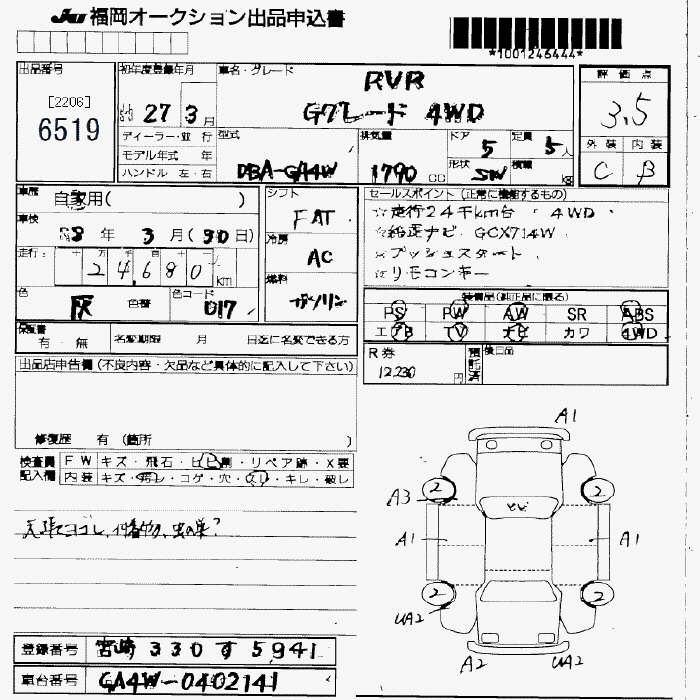 JU 福岡オークション出品申込書
*1001246444*
出品番号
[2206]
6519
初年度登録年月
27 3月
ディーラー・並 行
モデル年式 年
ハンドル 左・右
車名・グレード
RVR
Gグレード 4WD
型式
DBA-GA4W
排気量
1790 CC
ドア
5
形状
SW
定員
5人
積載
kg
評価点
3.5
外装 内装
C B
車歴
自家用( )
車検
R8年 3月(30日)
走行
24,680 km
色
灰
色替
色コード
U17
シフト
FAT
冷房
AC
燃料
ガソリン
セールスポイント(正常に機能するもの)
☆走行24千km台 4WD
☆純正ナビ GCX714W
☆プッシュスタート
☆リモコンキー
装備品(純正品に限る)
PS PW AW SR ABS
エアB TV ナビ カワ 4WD
保証書
有・無
名変期限 月 日迄に名変できる方
R券
12,230円
預託済
後日品
出品店申告欄(不良内容・欠品など具体的に記入して下さい)
修復歴 有(箇所 )
検査員記入欄
FW キズ・飛石・ヒビ割・リペア跡・X要
内装 キズ・汚レ・コゲ・穴・スリ・キレ・破レ
天張ヨゴレ、付着物、虫の巣?
A1
2 2
A3
ヒビ
A1 A1
2 2
UA2
A2 UA2
登録番号 宮崎 330 す 5941
車台番号 GA4W-0402141